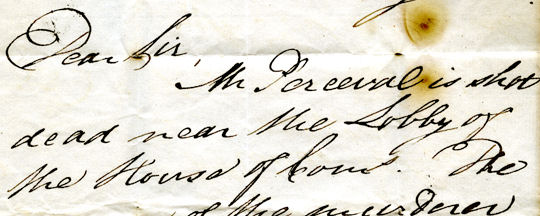 Dear Sir,
Mr Perceval is shot
dead near the Lobby of
the House of Com.s The
of the murderer